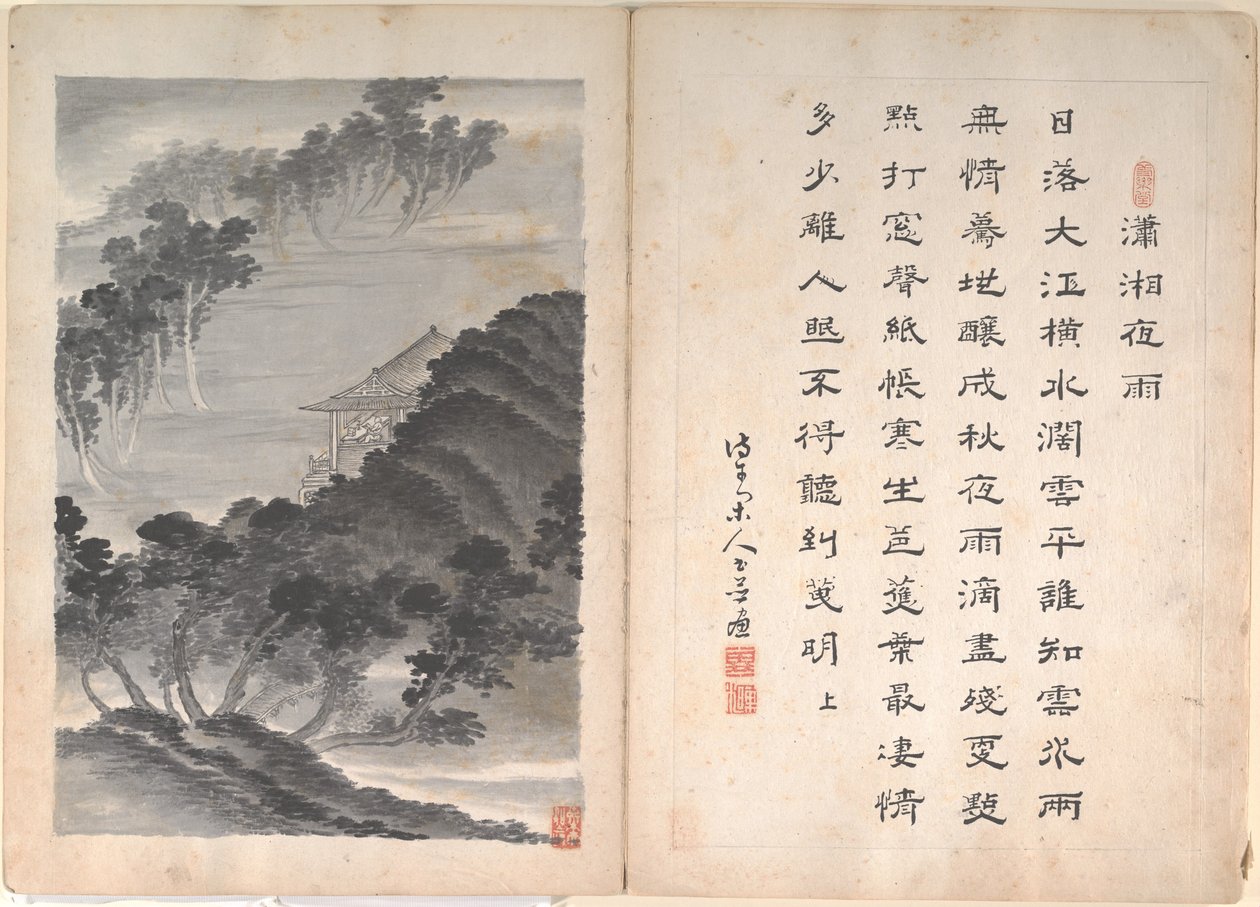 瀟湘夜雨
日落大江橫水闊雲平誰知雲水兩
無情驀地釀成秋夜雨滴盡殘更點
點打窓聲紙帳寒生芭蕉葉最凄情
多少離人眠不得聽到明上